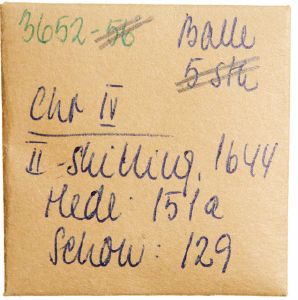 3652-56 Balle
5 stk
Chr IV
II - skilling, 1644
Hede: 151a
Schou: 129